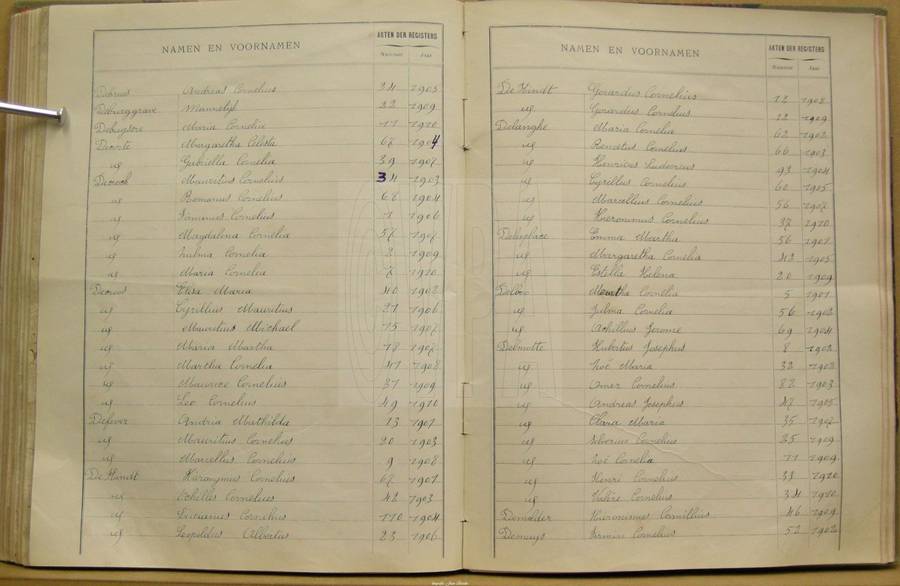 NAMEN EN VOORNAMEN AKTEN DER REGISTERS
Nummer Jaar
Andreas Cornelius 24 1905
Deburggrave 22 1909
Debuysere Maria Cornelia 11 1910
Margaretha Celesta 67 1904
id Gabriella Cornelia 39 1907
Mauritius Cornelius 34 1903
id Romanus Cornelius 68 1904
id Firminus Cornelius 1 1906
id Magdalena Cornelia 57 1907
id Zulma Cornelia 2 1909
id Maria Cornelia 7 1910
Elisa Maria 40 1902
id Cyrillus Mauritius 21 1906
id Mauritius Michael 15 1907
id Maria Martha 18 1907
id Martha Cornelia 41 1908
id Maurice Cornelius 37 1909
id Leo Cornelius 49 1910
Defever Andrea Mathilda 13 1901
id Mauritius Cornelius 20 1903
id Marcellus Cornelius 9 1908
De Handt Hieronymus Cornelius 67 1902
id Achilles Cornelius 42 1903
id Lucianus Cornelius 110 1904
id Leopoldus Albertus 23 1906
NAMEN EN VOORNAMEN AKTEN DER REGISTERS
Nummer Jaar
De Handt Gerardus Cornelius 12 1908
id Gerardus Cornelius 22 1909
Delanghe Maria Cornelia 62 1902
id Renatus Cornelius 66 1903
id Henricus Ludovicus 93 1904
id Cyrillus Cornelius 60 1905
id Marcellinus Cornelius 56 1907
id Hieronimus Cornelius 37 1910
Delaplace Emma Martha 56 1902
id Margaretha Cornelia 42 1905
id Estella Helena 20 1909
Martha Cornelia 5 1901
id Julma Cornelia 56 1902
id Achillius Jerome 69 1904
Delmotte Hubertus Josephus 8 1902
id Zoë Maria 32 1902
id Omer Cornelius 82 1903
id Andreas Josephus 47 1905
id Clara Maria 35 1907
id Silverius Cornelius 25 1909
id Zoë Cornelia 71 1909
id Henri Cornelius 33 1910
id Valère Cornelius 34 1910
Demolder Hieronismus Camillus 46 1909
Demuys Firmin Cornelius 52 1902